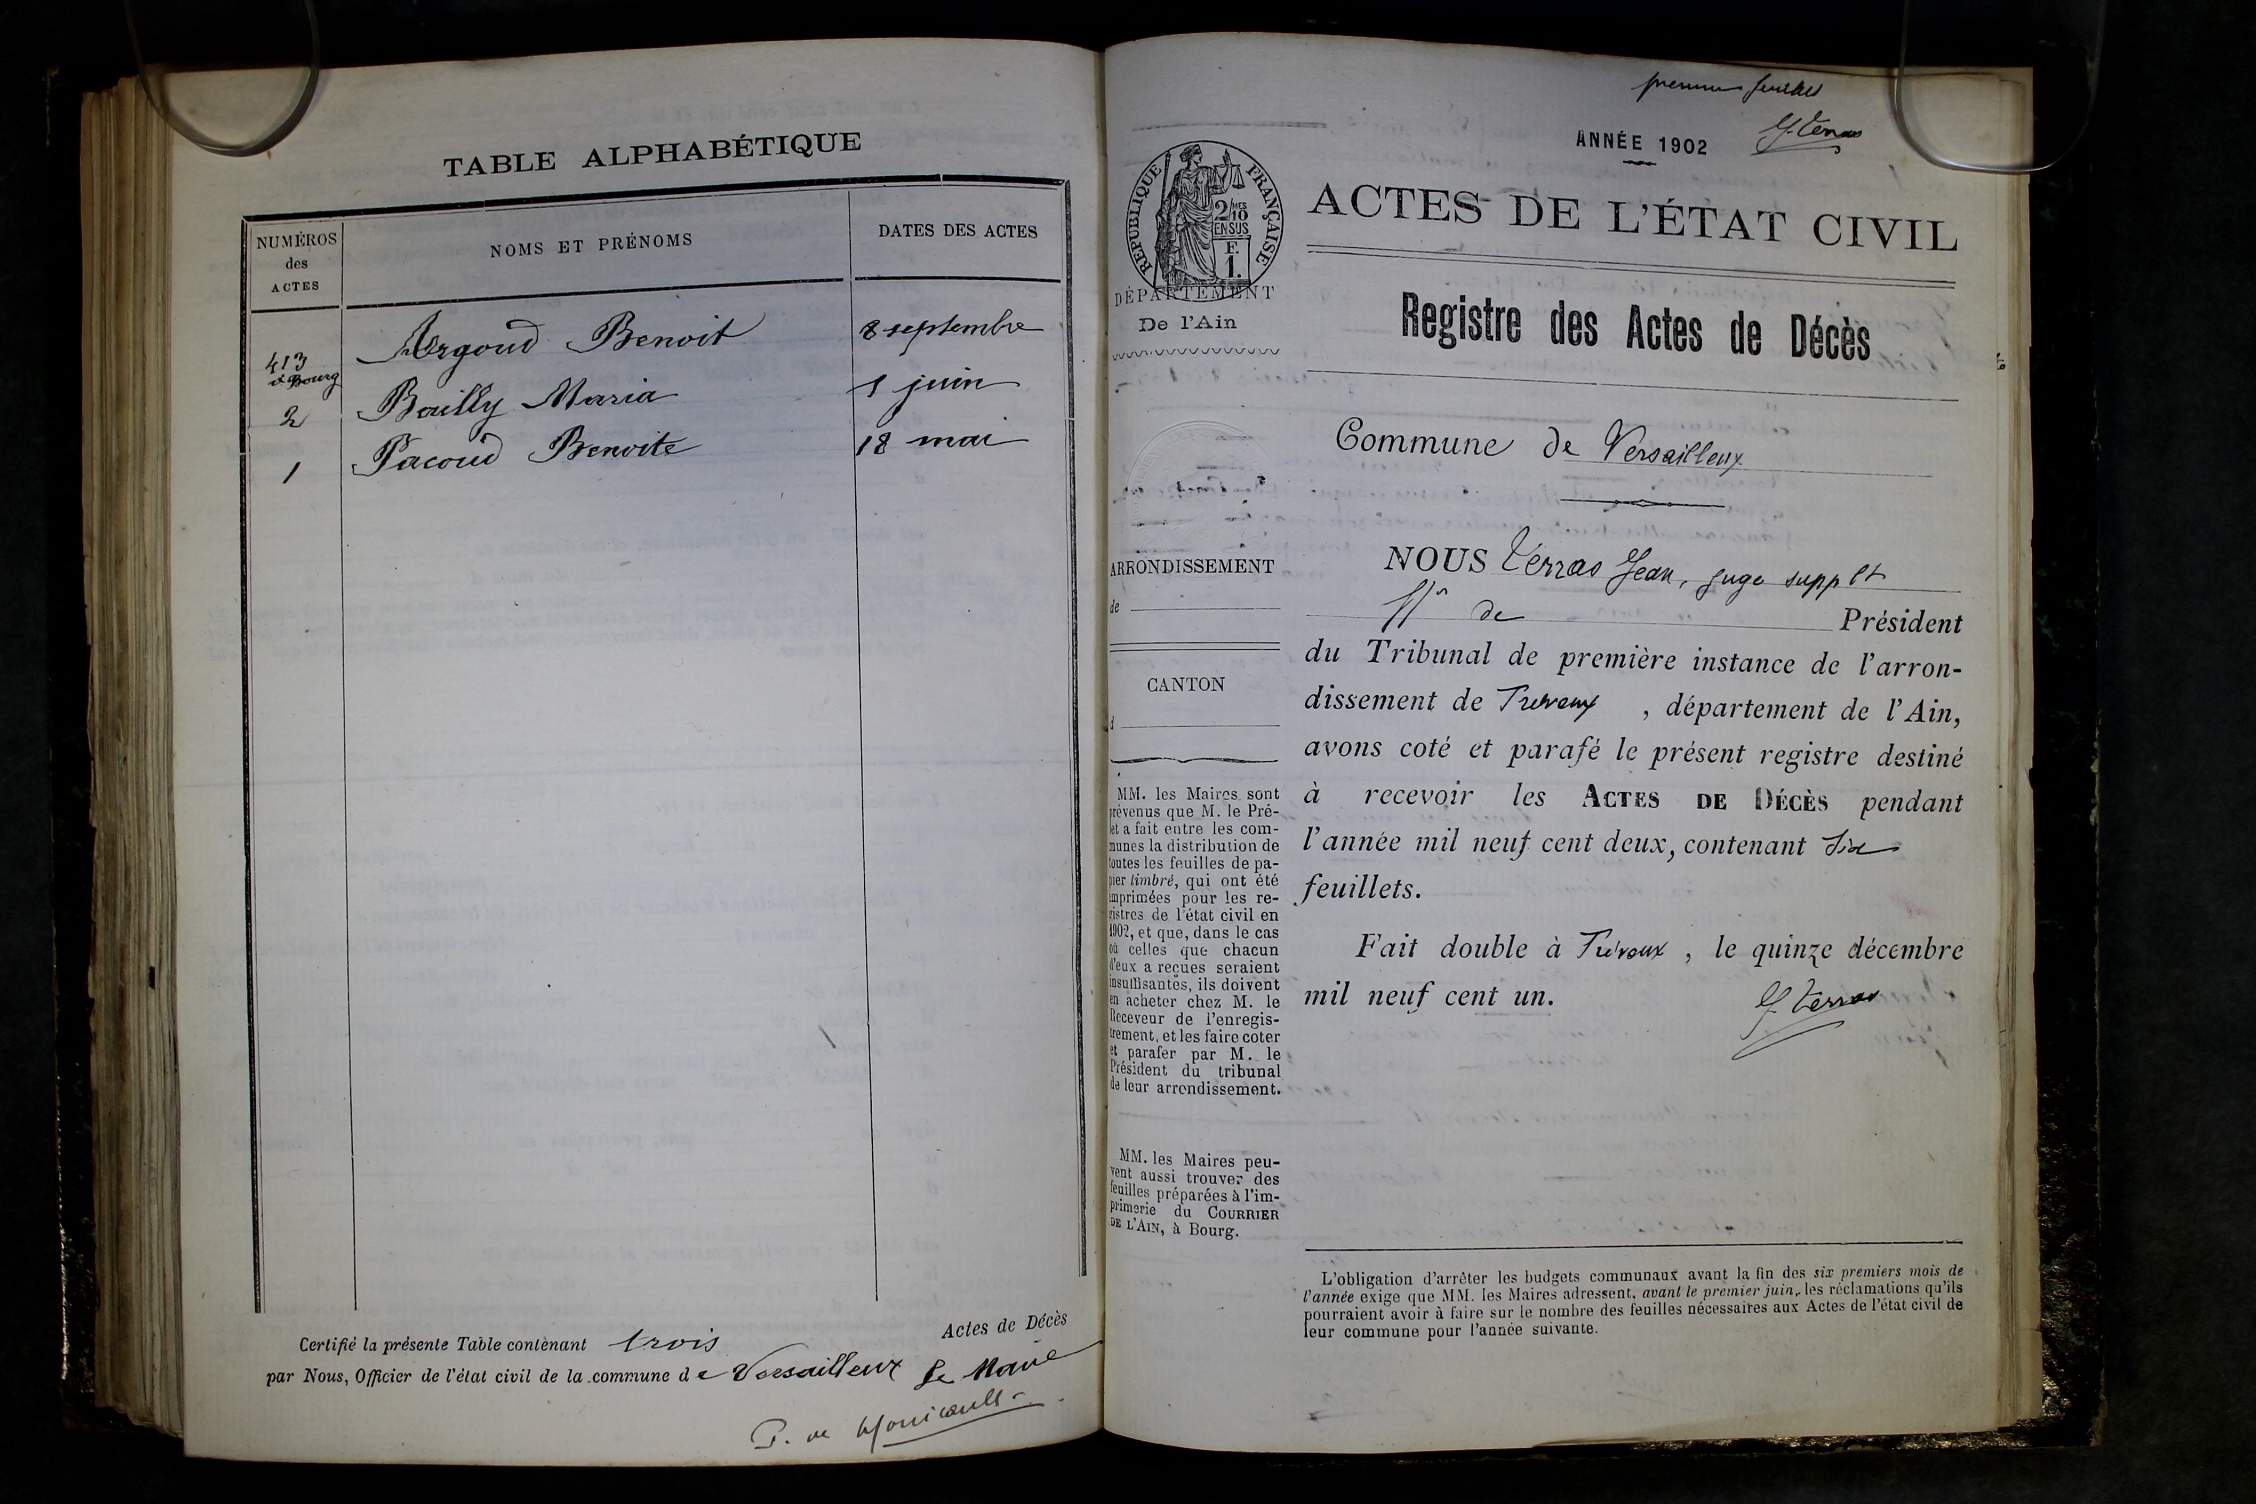 TABLE ALPHABÉTIQUE
NUMÉROS
des
ACTES
NOMS ET PRÉNOMS
DATES DES ACTES
413
d Bourg
Argoud Benoit
8 septembre
2
Bailly Maria
1 juin
1
Pacoud Benoite
18 mai
Certifié la présente Table contenant trois Actes de Décès
par Nous, Officier de l'état civil de la commune de Versailleux Le Maire
P. de Monicault
premier feuillet
J. Verras
ANNÉE 1902
ACTES DE L'ÉTAT CIVIL
Registre des Actes de Décès
RÉPUBLIQUE FRANÇAISE
2/10 MES
EN SUS
F.
1.
DÉPARTEMENT
De l'Ain
ARRONDISSEMENT
de
CANTON
d
MM. les Maires sont
prévenus que M. le Pré-
fet a fait entre les com-
munes la distribution de
toutes les feuilles de pa-
pier timbré, qui ont été
imprimées pour les re-
gistres de l'état civil en
1902, et que, dans le cas
où celles que chacun
d'eux a reçues seraient
insuffisantes, ils doivent
en acheter chez M. le
Receveur de l'enregis-
trement, et les faire coter
et parafer par M. le
Président du tribunal
de leur arrondissement.
MM. les Maires peu-
vent aussi trouver des
feuilles préparées à l'im-
primerie du COURRIER
DE L'AIN, à Bourg.
Commune de Versailleux
NOUS Verras Jean, juge suppl t
ff n de Président
du Tribunal de première instance de l'arron-
dissement de Trévoux, département de l'Ain,
avons coté et parafé le présent registre destiné
à recevoir les ACTES DE DÉCÈS pendant
l'année mil neuf cent deux, contenant six
feuillets.
Fait double à Trévoux, le quinze décembre
mil neuf cent un.
J. Verras
L'obligation d'arrêter les budgets communaux avant la fin des six premiers mois de
l'année exige que MM. les Maires adressent, avant le premier juin, les réclamations qu'ils
pourraient avoir à faire sur le nombre des feuilles nécessaires aux Actes de l'état civil de
leur commune pour l'année suivante.